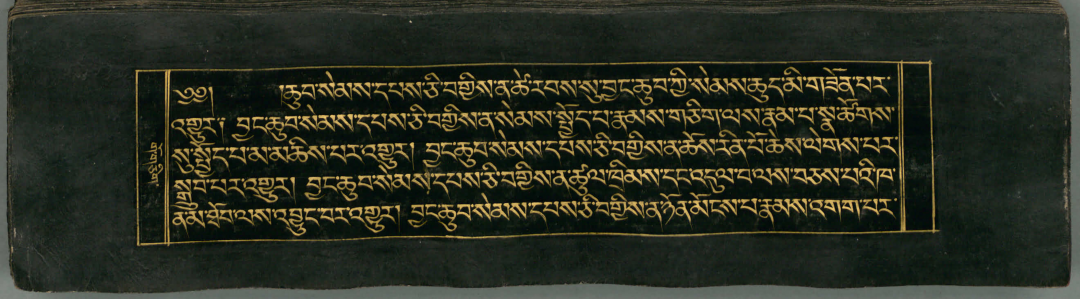 ༄༅། །ཆུབ་སེམས་དཔས་ཅི་བགྱིས་ན་ཚེ་རབས་སུ་བྱང་ཆུབ་ཀྱི་སེམས་ཆུད་མི་གཟོན་པར་
འགྱུར། བྱང་ཆུབ་སེམས་དཔས་ཅི་བགྱིས་ན་སེམས་སྤྱོད་པ་རྣམས་གཅིག་ལས་རྣམ་པ་སྣ་ཚོགས་
སུ་སྤྱོད་པ་མ་མཆིས་པར་འགྱུར། བྱང་ཆུབ་སེམས་དཔས་ཅི་བགྱིས་ན་ཆོས་རིན་པོ་ཆེས་ལེགས་པར་
སྒྲུབ་པར་འགྱུར། བྱང་ཆུབ་སེམས་དཔས་ཅི་བགྱིས་ན་ཚུལ་ཁྲིམས་དང་འདུལ་བ་ལས་བཅས་པའི་ཁ་
ན་མ་ཐོབ་ལས་འབྱུང་པར་འགྱུར། བྱང་ཆུབ་སེམས་དཔས་ཅི་བགྱིས་ན་ཉོན་མོངས་པ་རྣམས་འགག་པར་